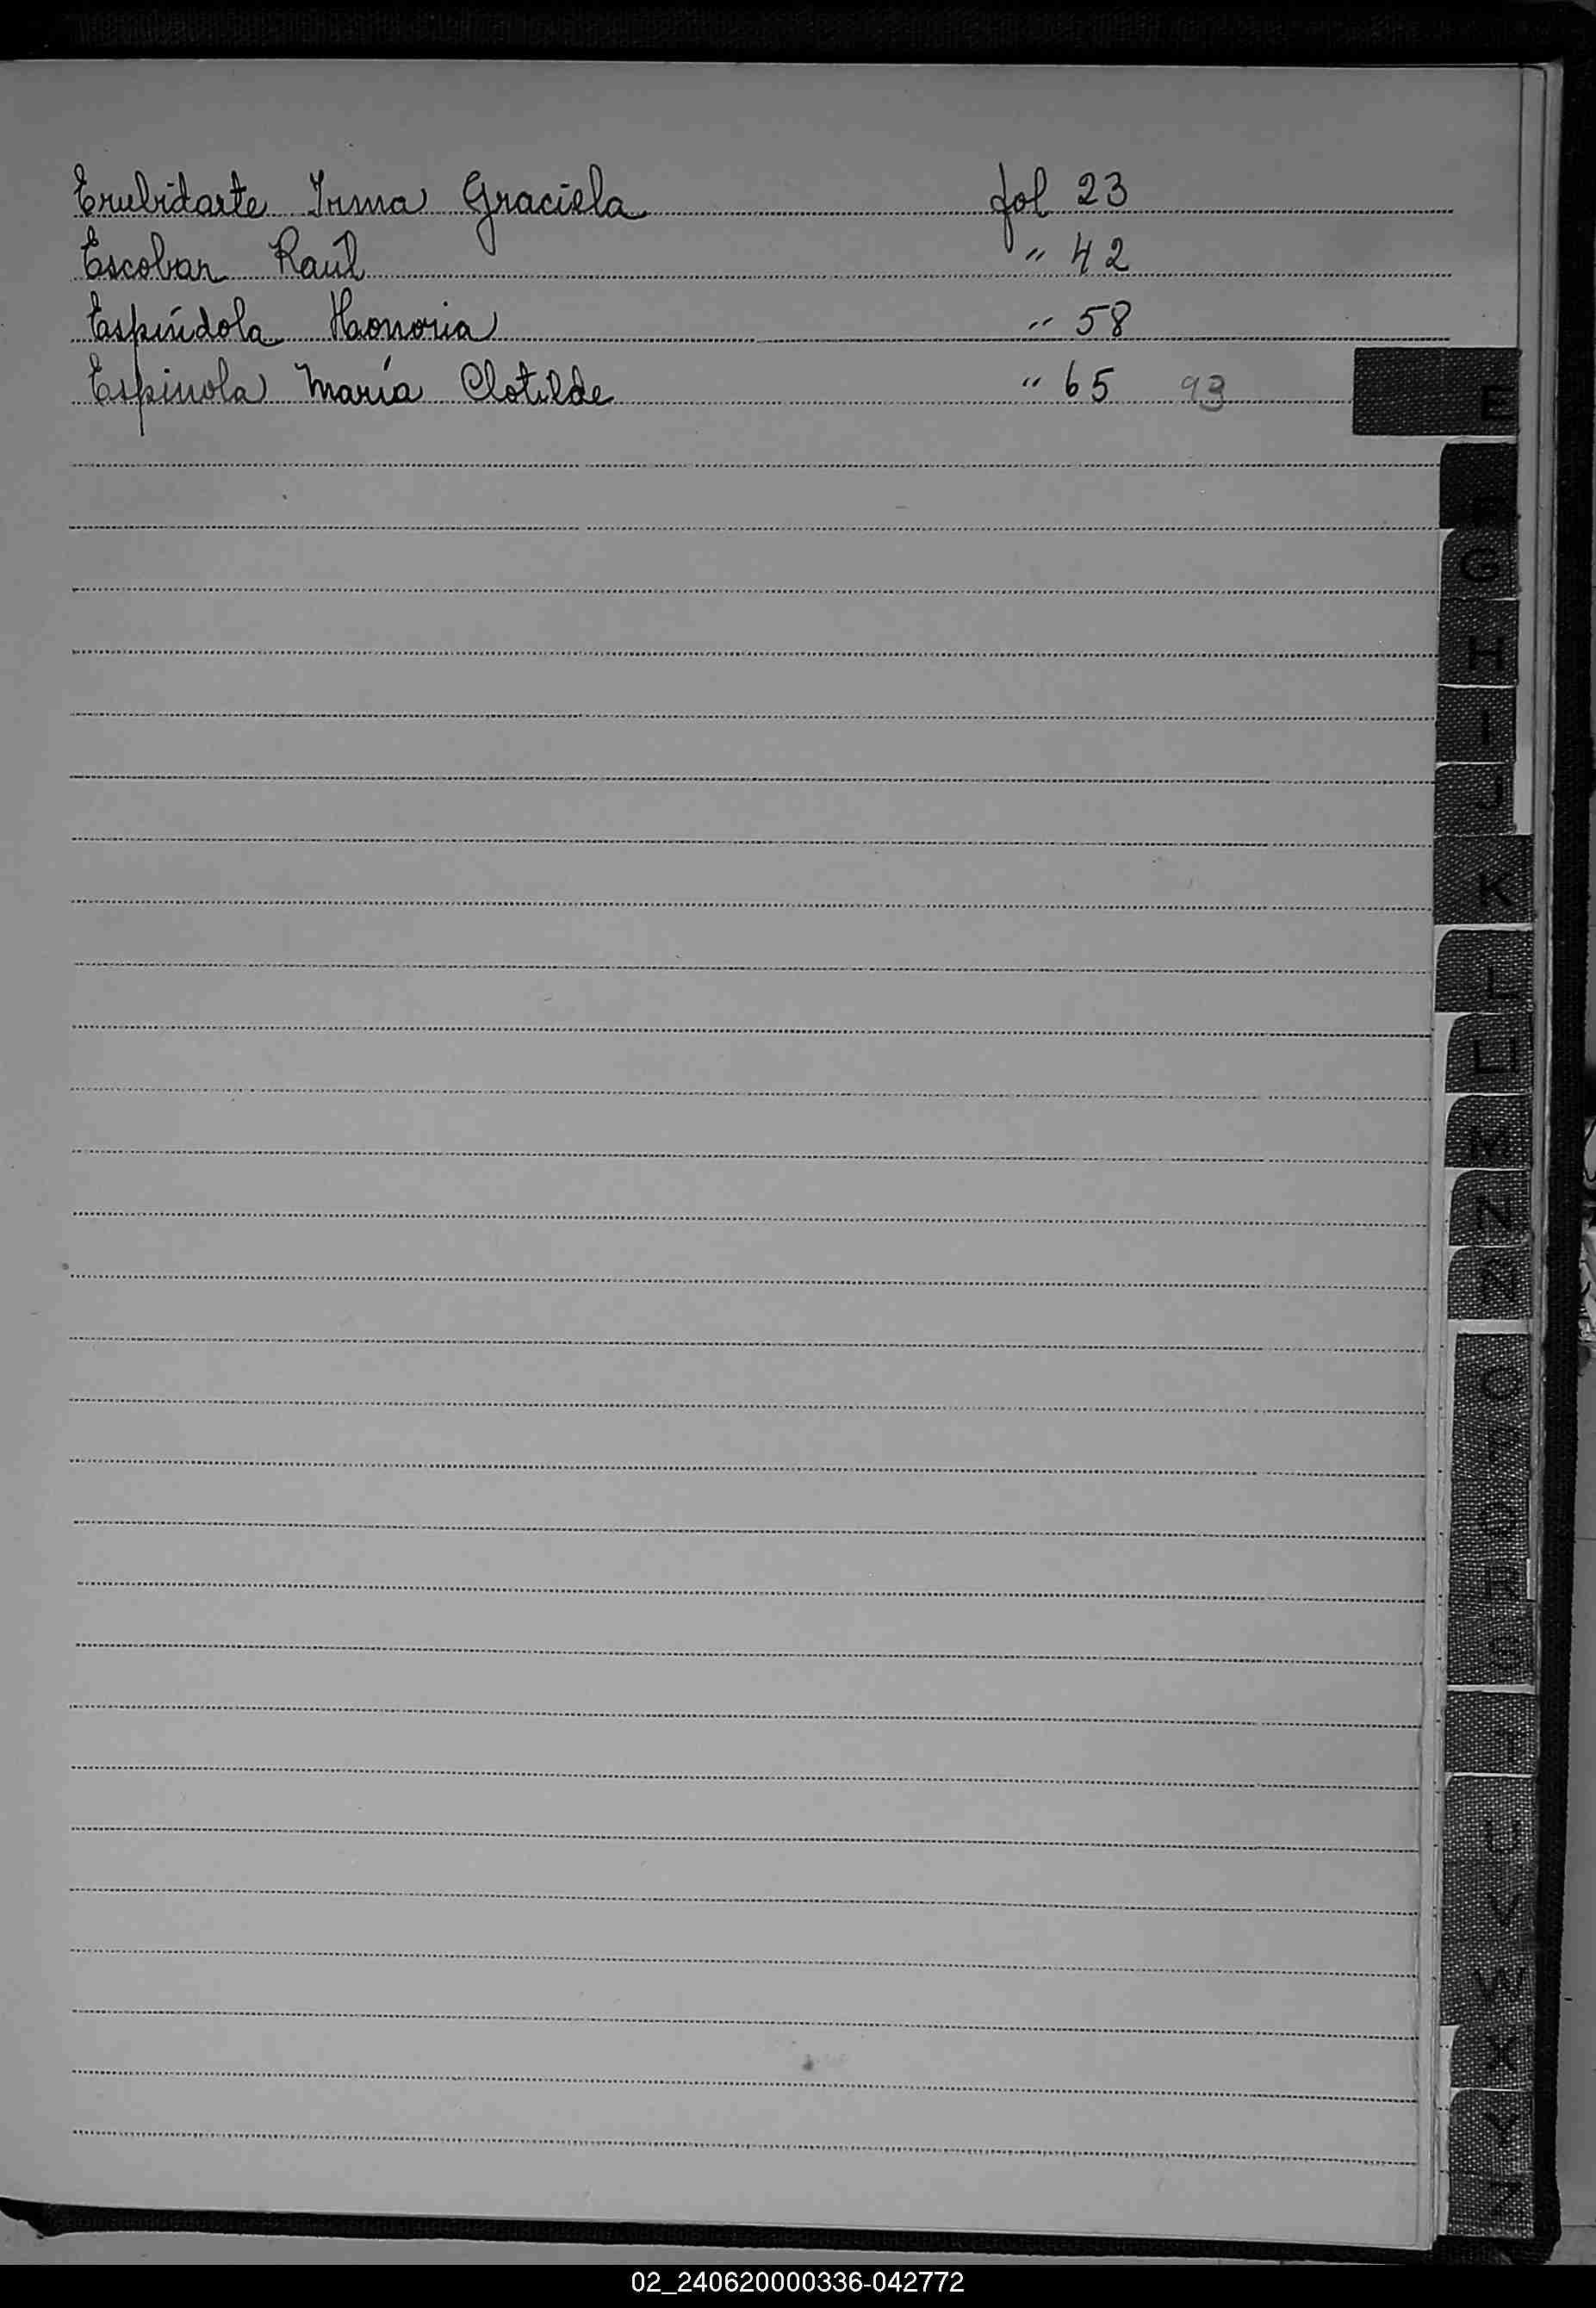 Erubidarte Irma Graciela fol 23
Escobar Raúl " 42
Espíndola Honoria " 58
Espinola María Clotilde " 65 93
E
G
H
I
J
K
L
LL
M
N
Ñ
O
P
Q
R
S
T
U
V
W
X
Y
Z
02_240620000336-042772